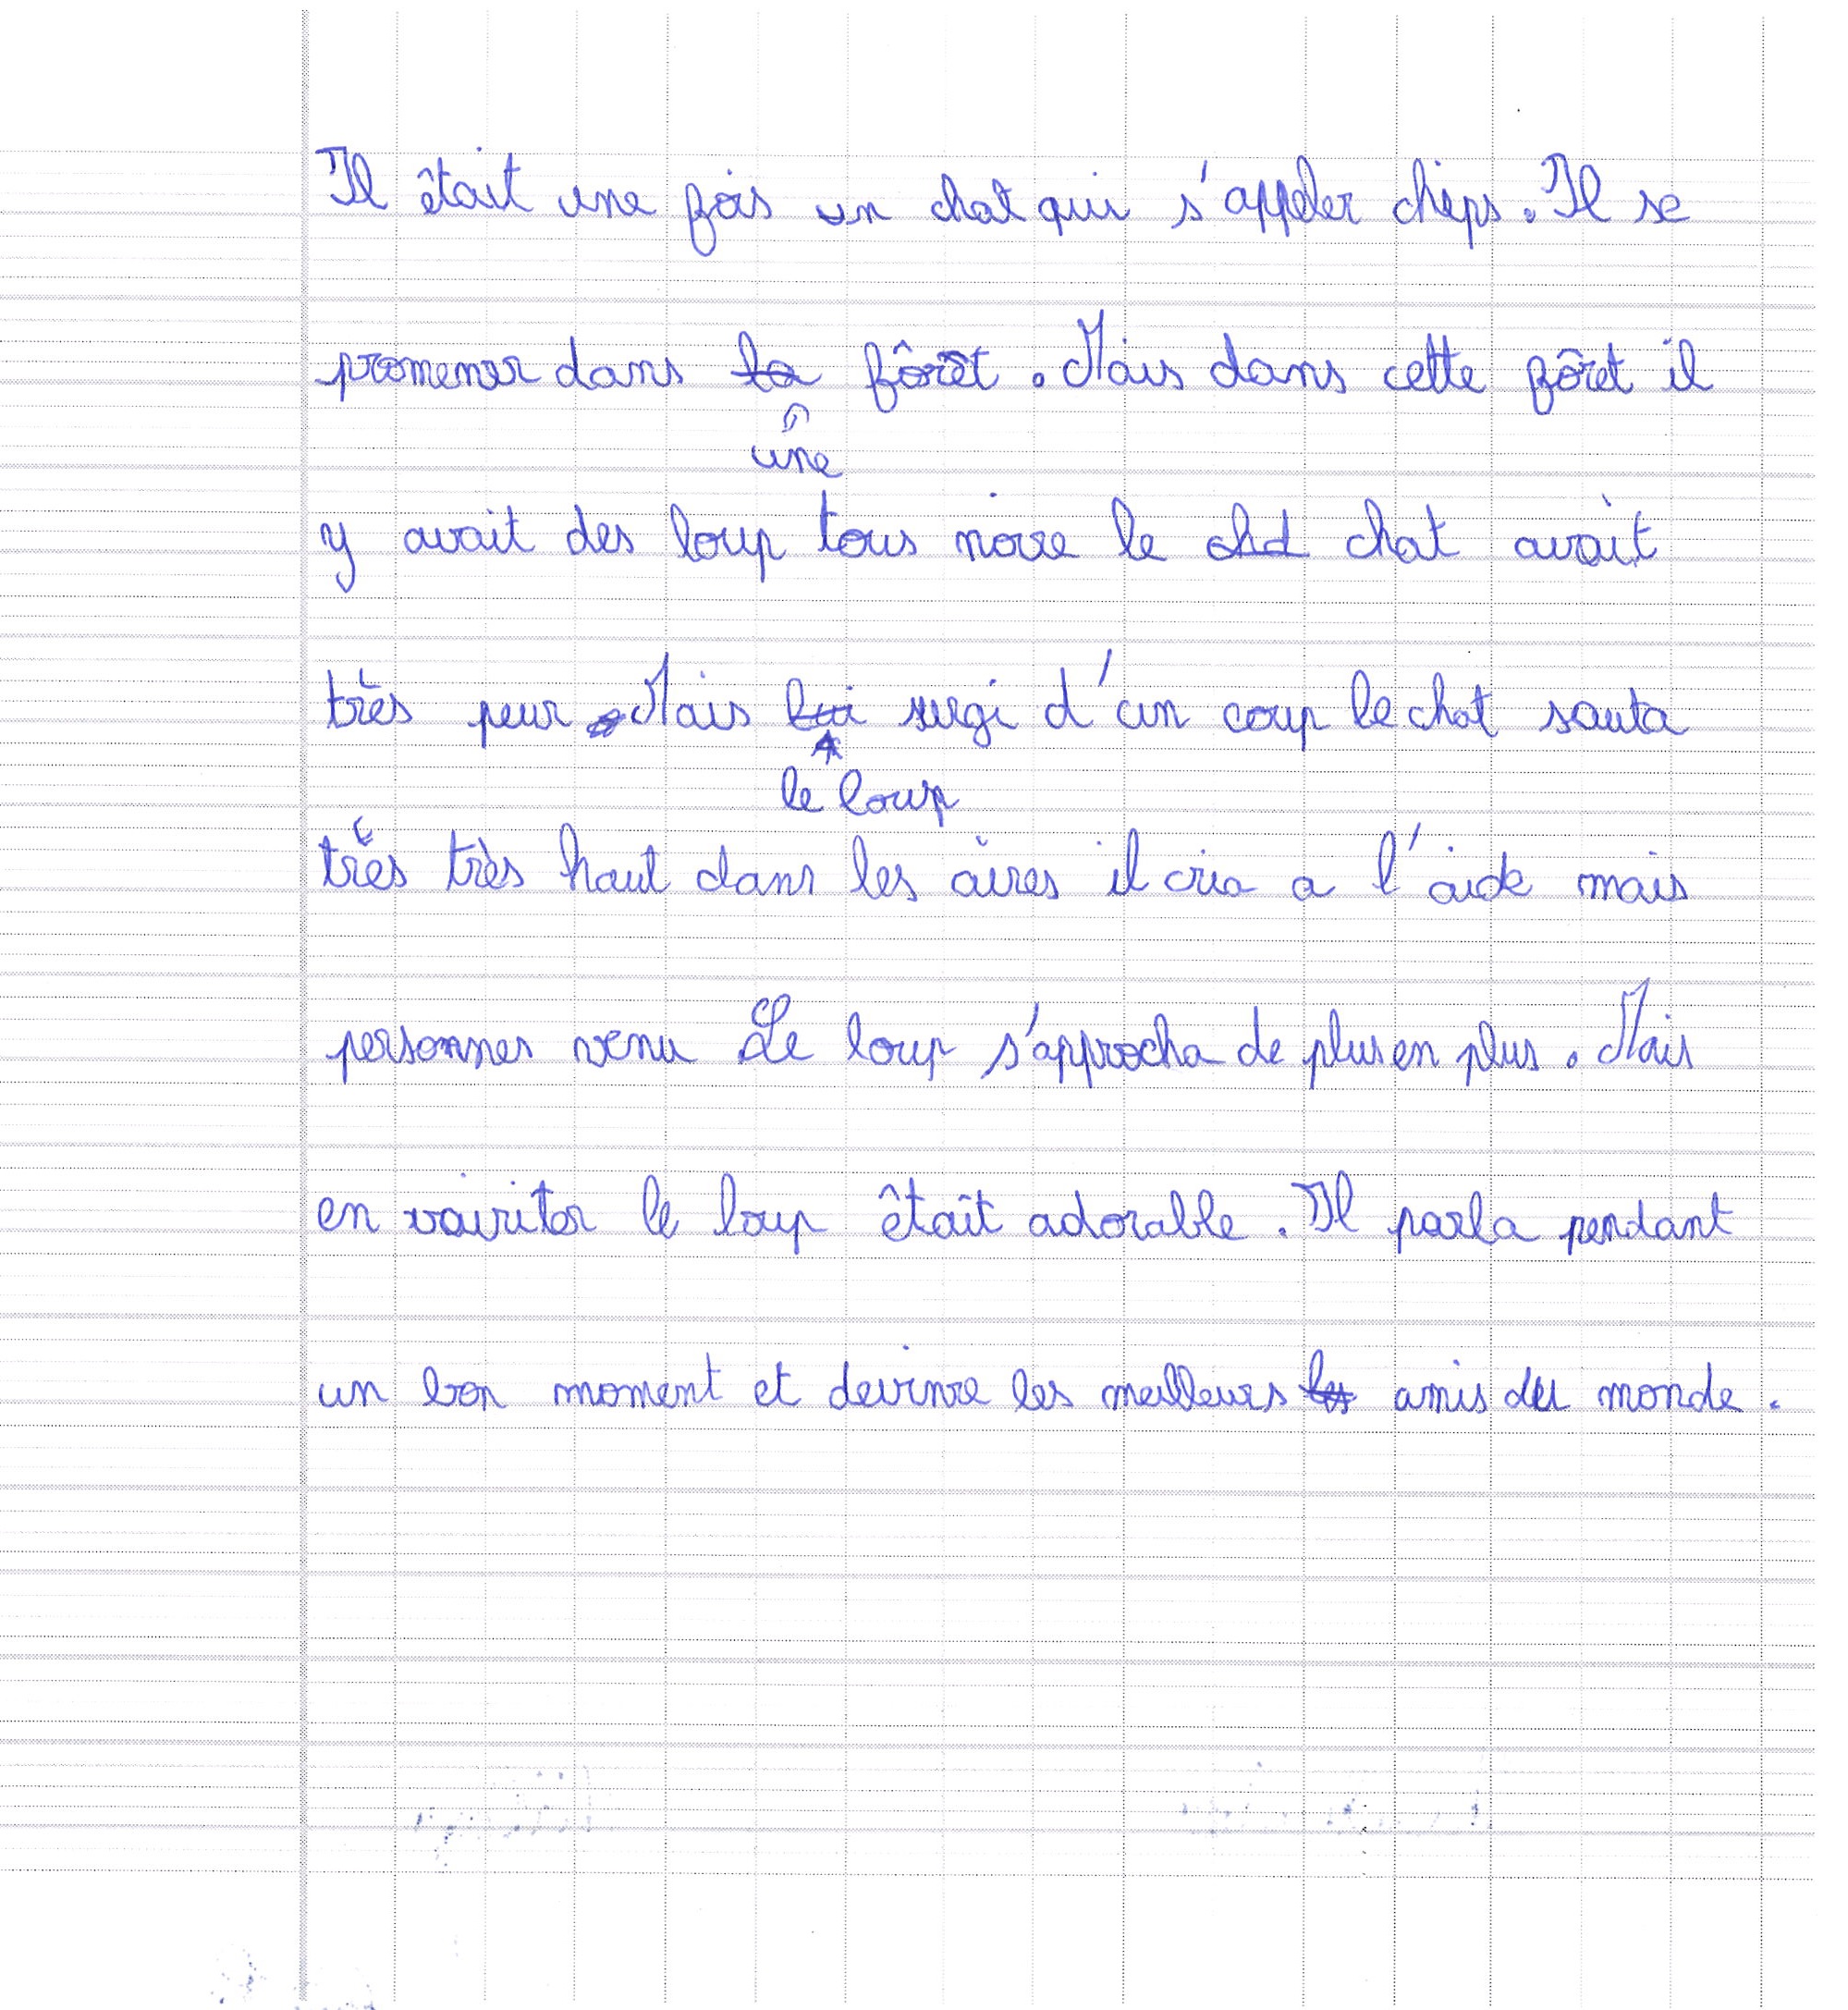 Il était une fois un chat qui s'appeler chips. Il se
promener dans la fôrêt. Mais dans cette fôret il
une
y avait des loup tous noire le chat avait
très peur. Mais lui surgi d'un coup le chat sauta
le loup
très très haut dans les aires il cria a l'aide mais
personnes venu Le loup s'approcha de plus en plus. Mais
en vairiter le loup était adorable. Il parla pendant
un bon moment et devinre les meilleurs amis du monde.